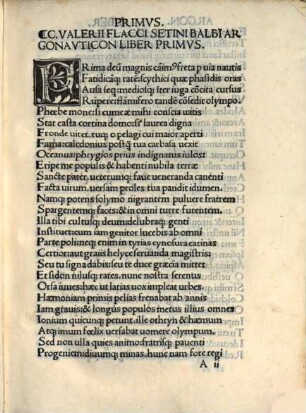 PRIMVS.
C. VALERII FLACCI SETINI BALBI AR
GONAVTICON LIBER PRIMVS.
PRima deũ magnis cãim⁹ freta ꝑuia nautis
Fatidicãq; ratẽ: scythici quæ phasidis oras
Ausa seq; mediosq; iter iuga cõcita cursus
Rũpere: flãmifero tandẽ cõsedit olympo.
Phœbe mone: si cumeæ mihi conscia uatis
Stat casta cortina domo: si laurea digna
Fronde uiret. tuq; o pelagi cui maior aperti
Fama: caledonius postq̃ tua carbasa uexit
Oceanus: phrygios prius indignatus iulos:
Eripe me populis & habenti nubila terræ:
Sancte pater. ueterumq; faue ueneranda canenti
Facta uirum. uersam proles tua pandit idumen.
Namq; potens solymo nigrantem puluere fratrem
Spargentemq; faces: & in omni turre furentem.
Ille tibi cultusq; deum: delubraq; genti
Instituet: cum iam genitor lucebis ab omni
Parte poli: neq; enim in tyrias cynosura carinas
Certior: aut graiis helyce seruanda magistris:
Seu tu signa dabis: seu te duce græcia mittet
Et sidon nilusq; rates. nunc nostra serenus
Orsa iuues: hæc ut latias uox impleat urbes.
Hæmoniam primis pelias frenabat ab annis
Iam grauis: & longus populos metus. illius omnes
Ionium quicunq; petunt. ille othryn & hæmum
Atq; imum fœlix uersabat uomere olympum.
Sed non ulla quies animo: fratrisq; pauenti
Progeniem: diuumq; minas. hunc nam fore regi
A ii